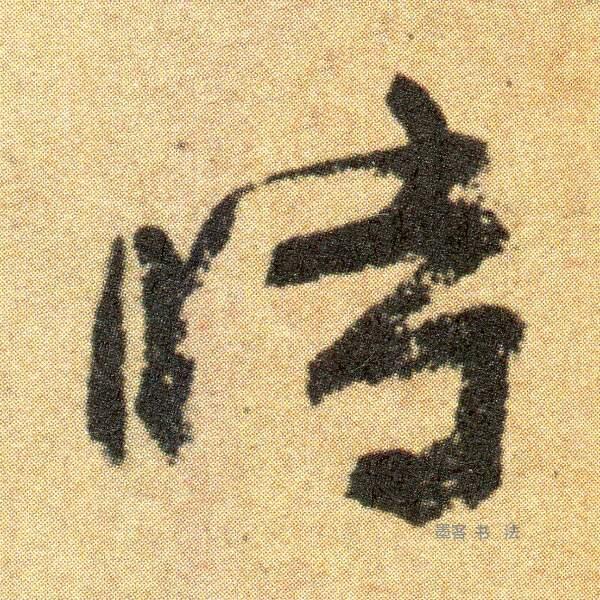 情
墨客书法